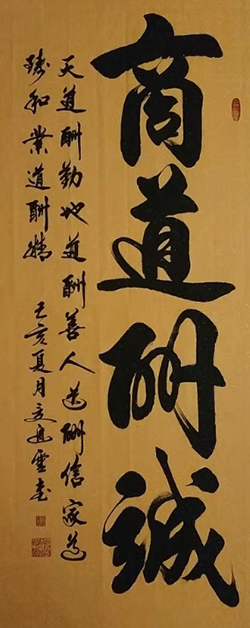 商道酬诚
天道酬勤地道酬善人道酬信家道
酬和業道酬精 己亥夏月